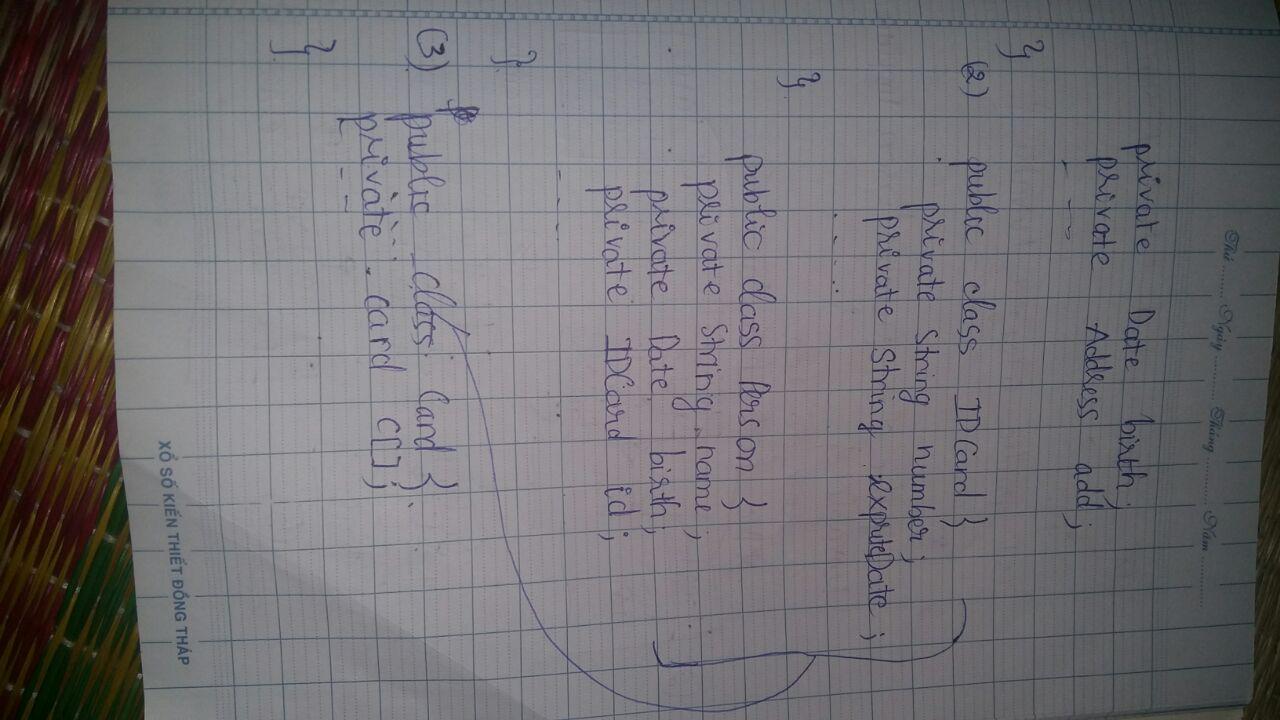 Thứ ......... Ngày ......... Tháng ......... Năm .........
private Date birth;
private Address add;
- - -
}
(2) public class IDCard }
private String number;
private String expriteDate;
- - - -
}
public class Person }
private String name;
private Date birth;
private IDCard id;
- - - -
}
(3) public class Card }
private card C[];
- - -
}
XỔ SỐ KIẾN THIẾT ĐỒNG THÁP